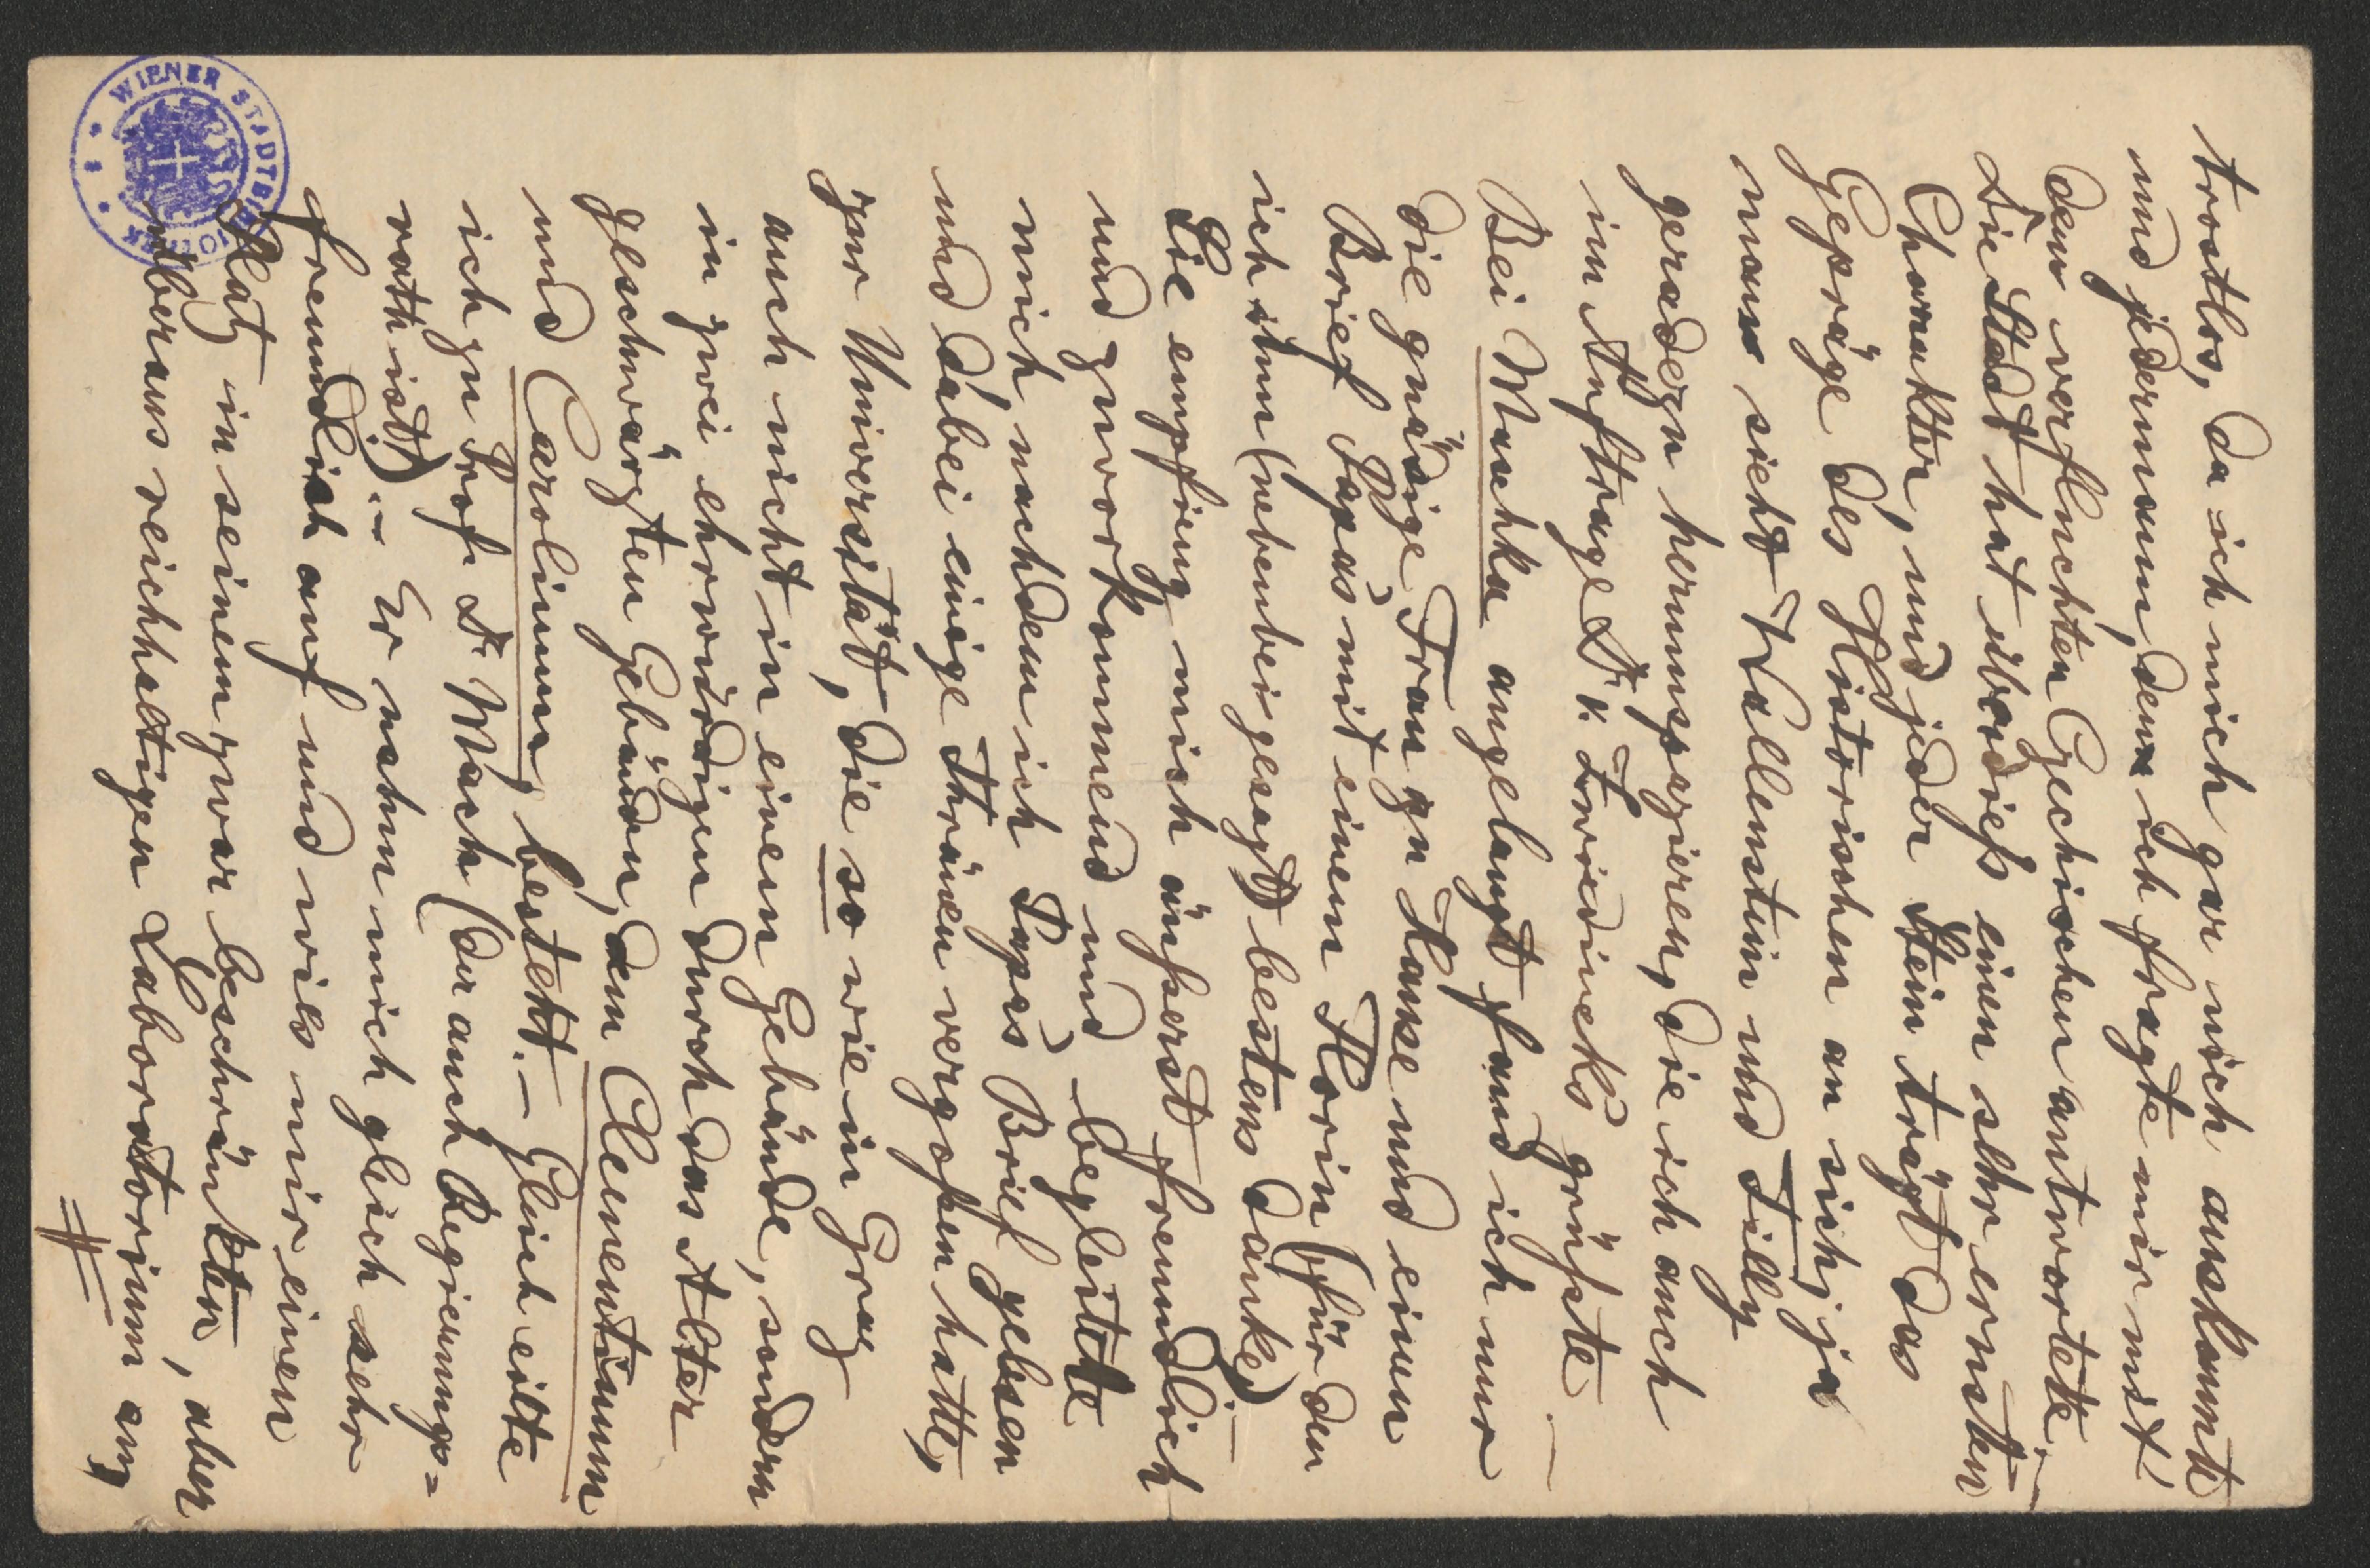 trostlos, da ich mich gar nich auskannte
und jedermann, denn ich fragte mir mit
dem verfluchten Czechischen antwortete. –
Die Stadt hat überdieß einen sehr ernsten
Charakter, und jeder Stein trägt das
Gepräge des Historischen an sich; ja
man sieht Wallenstein und Tilly
geradezu herumspazieren, die ich auch
im Auftrage Dr v. Zwiedineks grüßte. –
Bei Muchka angelangt fand ich nur
die gnädige Frau zu Hause und einen
Brief Papas mit einem Florin (für den
ich ihm (nebenbei gesagt) bestens danke). –
Sie empfieng mich äußerst freundlich
und zuvorkommend und begleitete
mich, nachdem ich Papas Brief gelesen
und dabei einige Thränen vergoßen hatte,
zur Universität, die so wie in Graz
auch nicht in einem Gebäude, sondern
in zwei ehrwürdigen durch das Alter
geschwärzten Gebäuden, dem Clementinum
und Carolinum, besteht. – Gleich eilte
ich zu Prof. Dr Mach (der auch Regierungs=
rath ist). – Er nahm mich gleich sehr
freundlich auf und wies mir einen
Platz in seinem zwar beschränkten, aber
überaus reichhaltigen Laboratorium an,
WIENER STADTBIBLIOTHEK